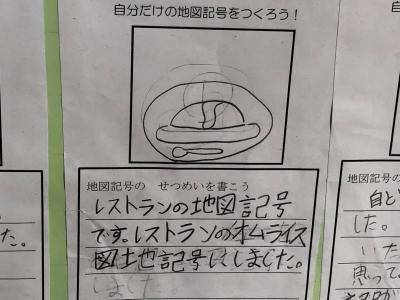 自分だけの地図記号をつくろう！
地図記号の せつめいを書こう
レストランの地図記号
です。レストランのオムライス
図土地記号にしました。
しました
た。
地図記号の
自ど
した。
いた
思って